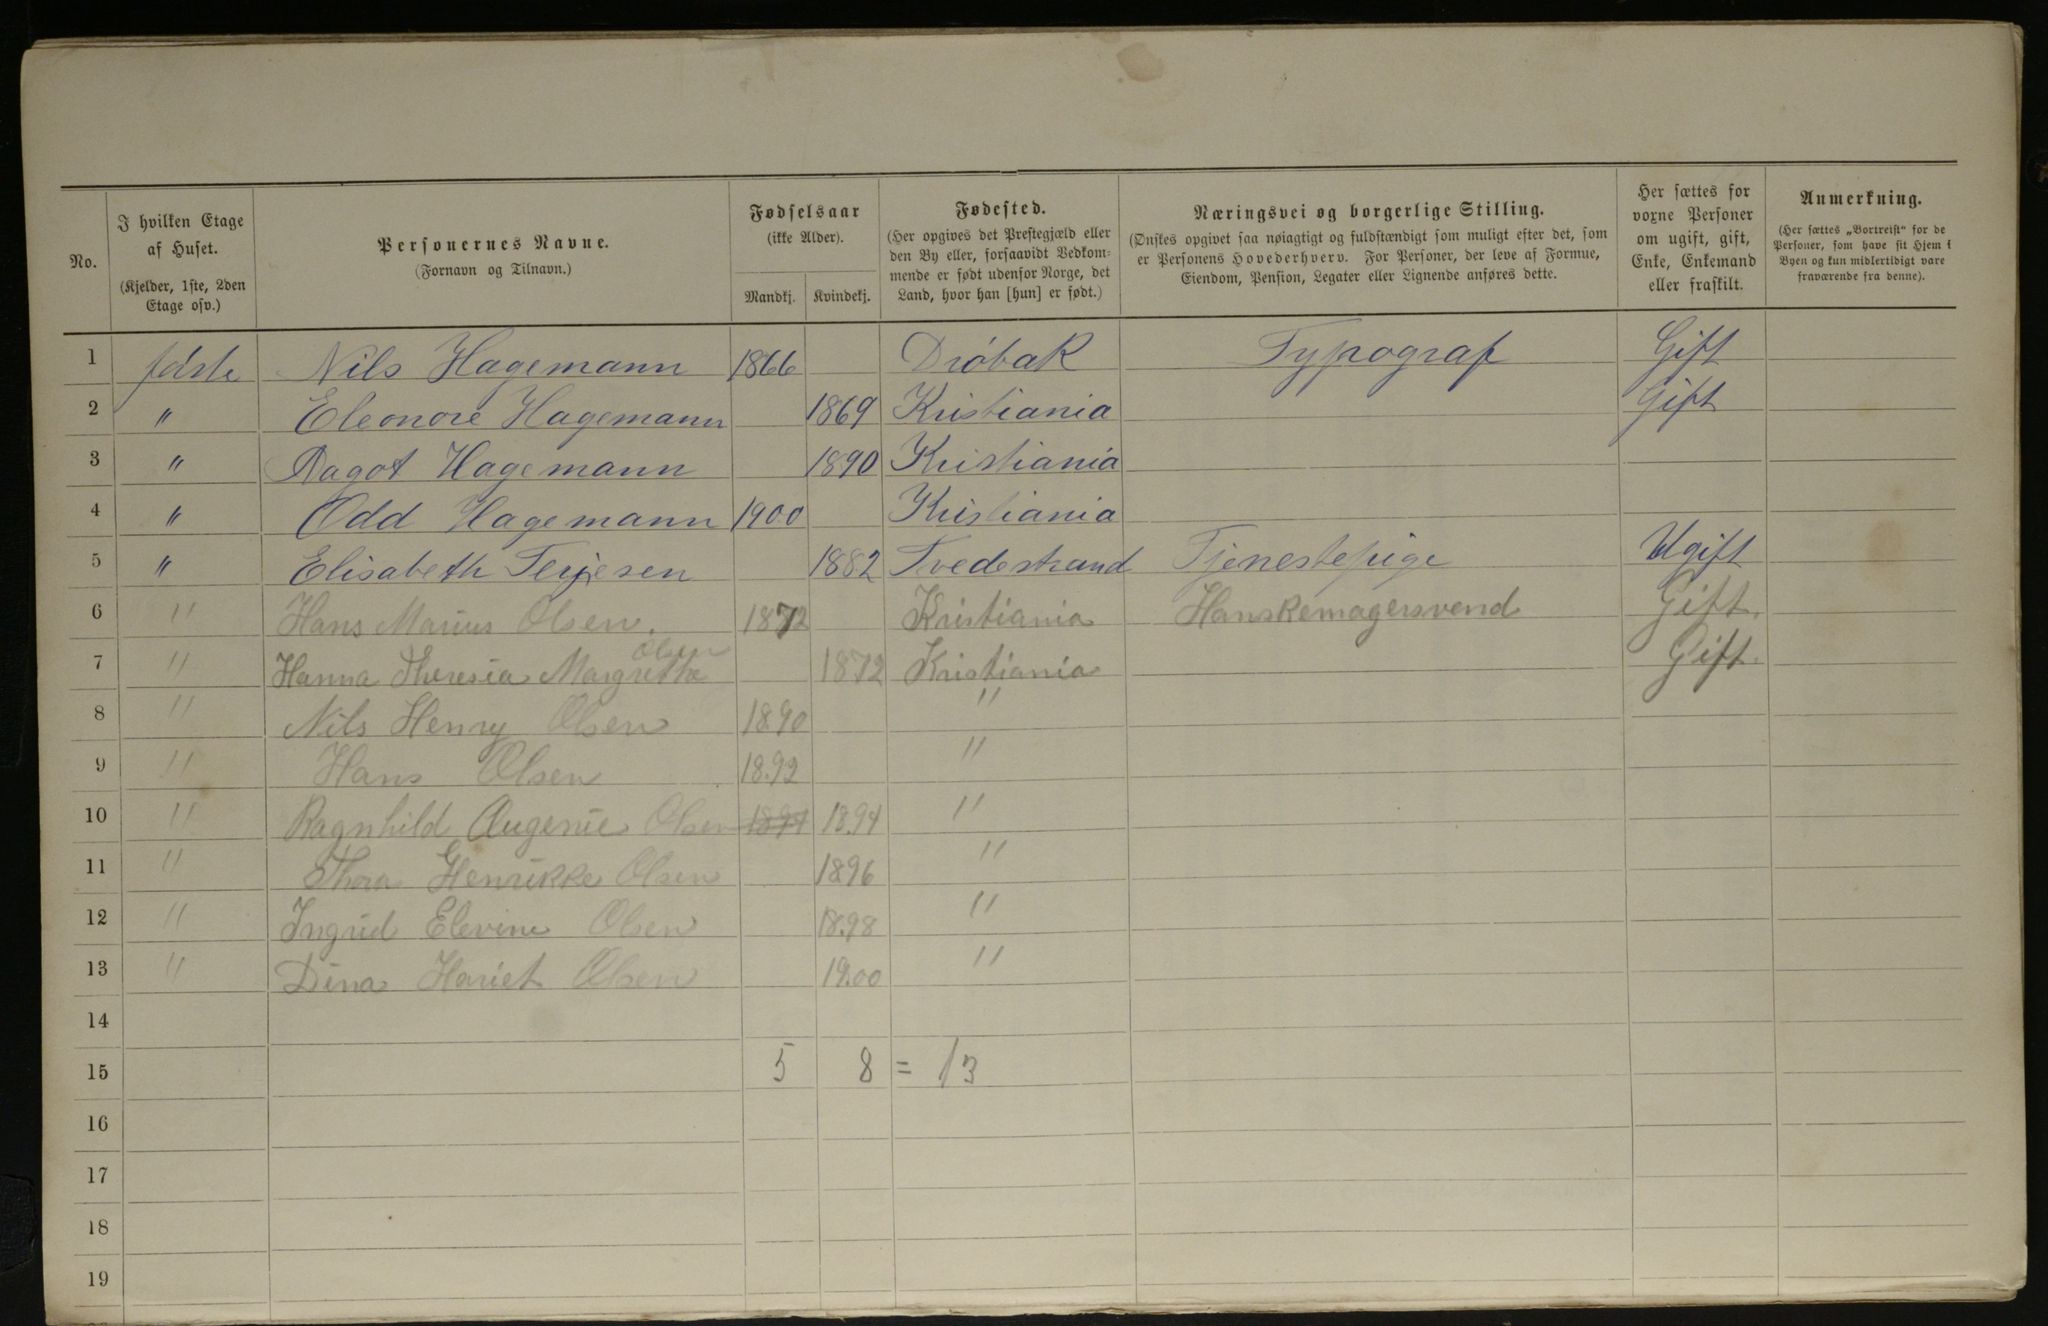 No.
I hvilken Etage
af Huset.
(Kjelder, 1ste, 2den
Etage osv.)
Personernes Navne.
(Fornavn og Tilnavn.)
Fødselsaar
(ikke Alder).
Mandkj. Kvindekj.
Fødested.
(Her opgives det Prestegjæld eller
den By eller, forsaavidt Vedkom-
mende er født udenfor Norge, det
Land, hvor han [hun] er født.)
Næringsvei og borgerlige Stilling.
(Ønskes opgivet saa nøiagtigt og fuldstændigt som muligt efter det, som
er Personens Hovederhverv. For Personer, der leve af Formue,
Eiendom, Pension, Legater eller Lignende anføres dette.
Her sættes for
voxne Personer
om ugift, gift,
Enke, Enkemand
eller fraskilt.
Anmerkning.
(Her sættes „Bortreist“ for de
Personer, som have sit Hjem i
Byen og kun midlertidigt vare
fraværende fra denne).
1 første Nils Hagemann 1866 Dróbak Typograf Gift
2 " Eleonore Hagemann 1869 Kristiania Gift
3 " Dagot Hagemann 1890 Kristiania
4 " Odd Hagemann 1900 Kristiania
5 " Elisabeth Terjesen 1882 Tvedestrand Tjenestepige Ugift
6 " Hans Marius Olsen. 1872 Kristiania Hanskemagersvend Gift.
7 " Hanna Theresia Margrethe Olsen 1872 Kristiania Gift.
8 " Nils Henry Olsen 1890 "
9 " Hans Olsen 1892 "
10 " Ragnhild Augenie Olsen 1894 1894 "
11 " Thora Henrikke Olsen 1896 "
12 " Ingrid Elevine Olsen 1898 "
13 " Dina Hariet Olsen 1900 "
14
15 5 8 = 13
16
17
18
19